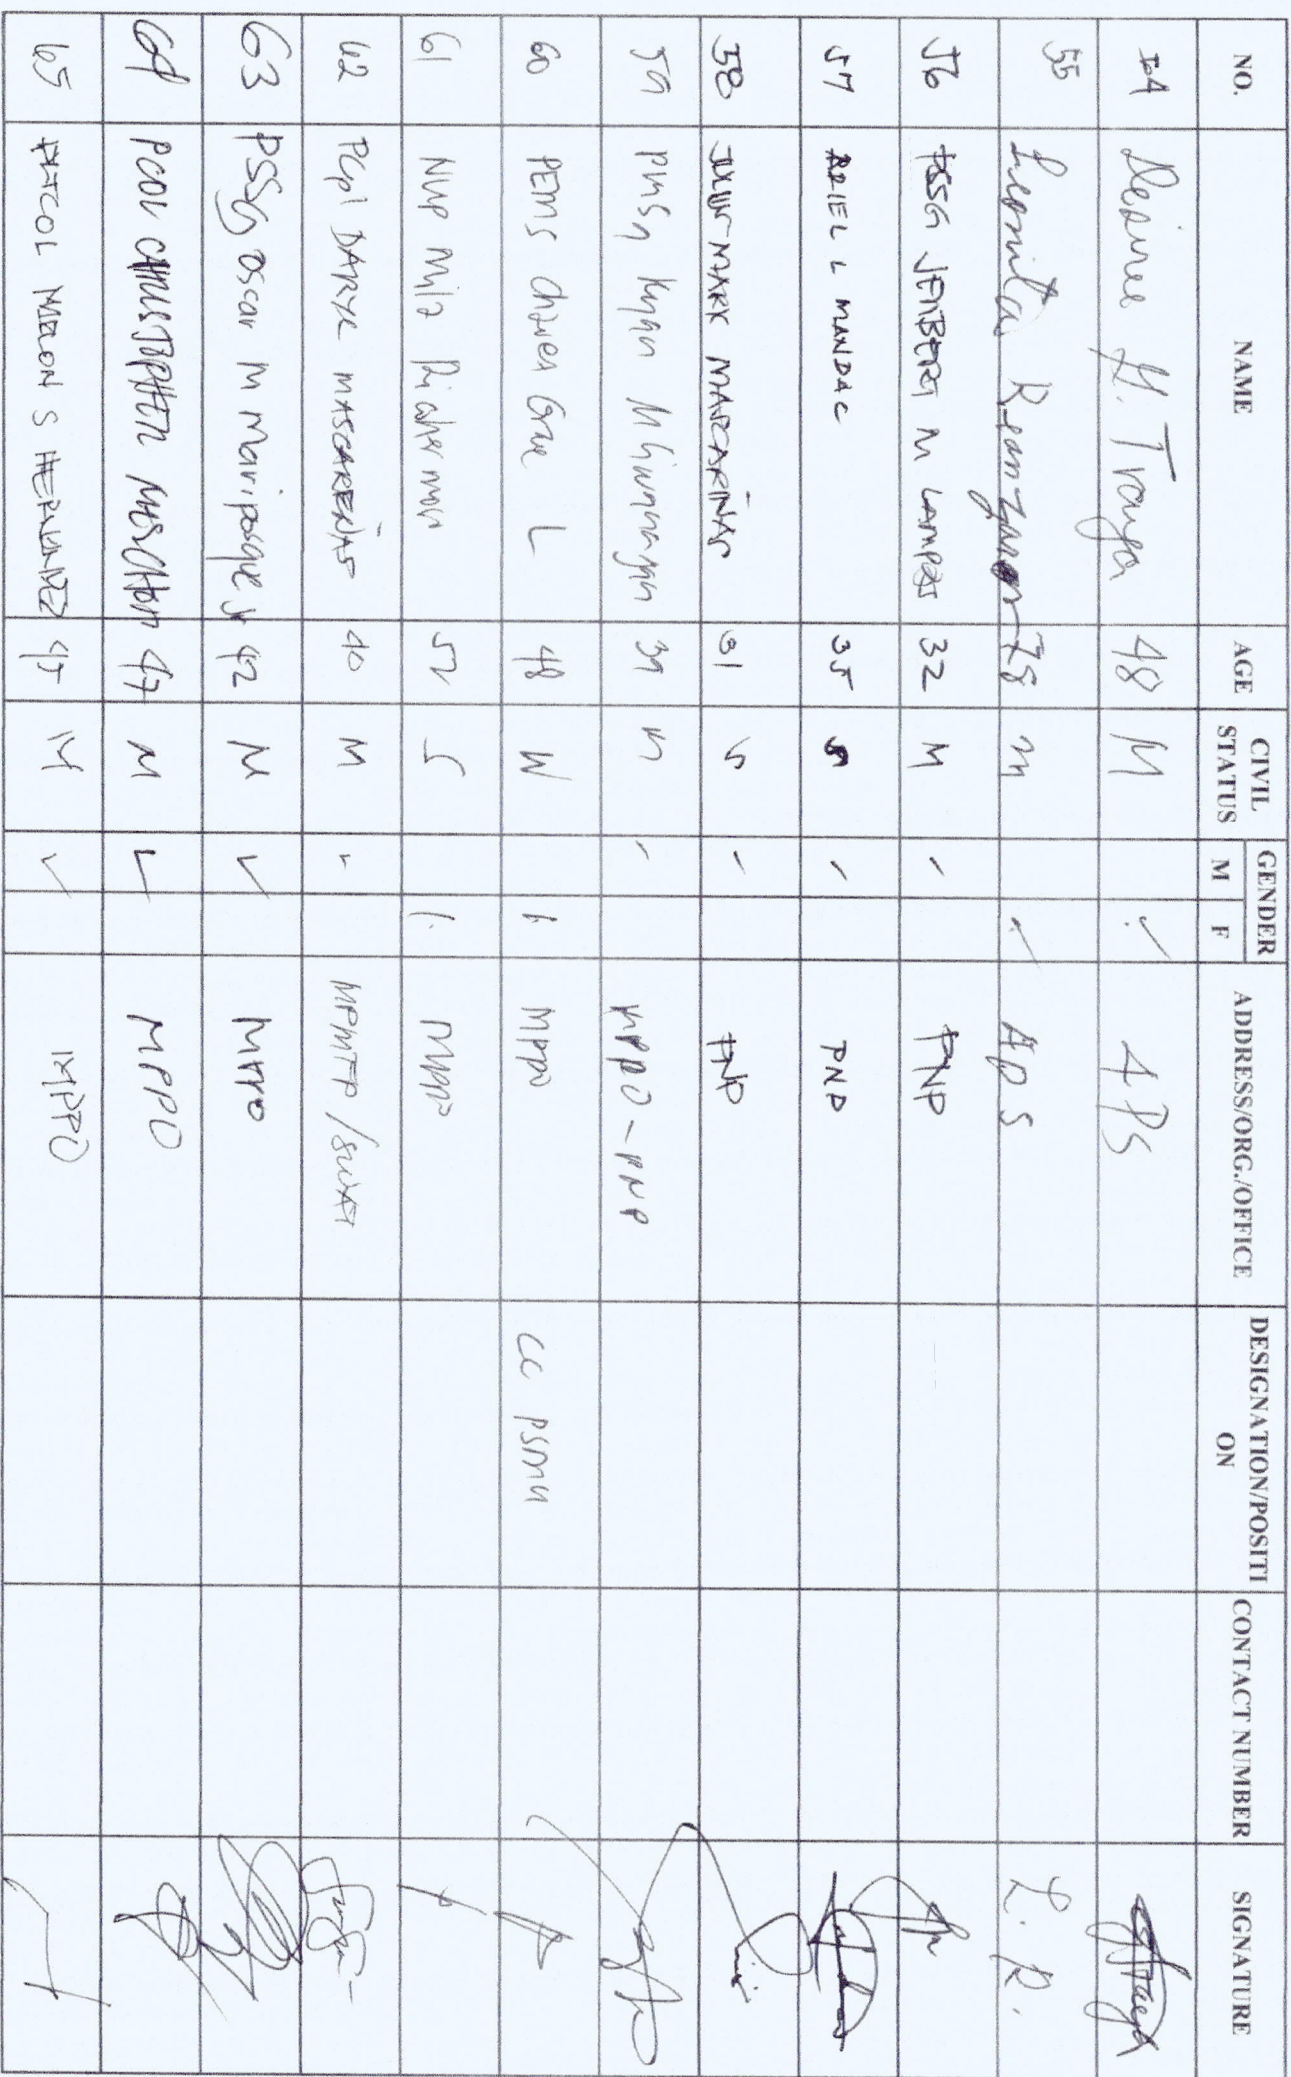 NO. NAME AGE CIVIL STATUS GENDER M F ADDRESS/ORG./OFFICE DESIGNATION/POSITION CONTACT NUMBER SIGNATURE
54 Desiree H. Traya 48 M APS
55 78 m APS L. R.
56 PSSG JEMBERT M LAMPAS 32 M PNP
57 ARIEL L MANDAC 35 S PNP
58 JULIUS MARK MARCARIÑAS 31 S PNP
59 PMSg 39 M MPPO-PNP
60 PEMS Grace L 48 W MPPO CC PSMU
61 NUP 52 S MPPO
62 PCpl DARYL MASCAREÑAS 40 M MPMFP/SWAT
63 PSSg Oscar M Mariposque Jr 42 M MPPO
64 PCOL CHRISTOPHER 47 M MPPO
65 PLTCOL S HERNANDEZ 45 M MPPO